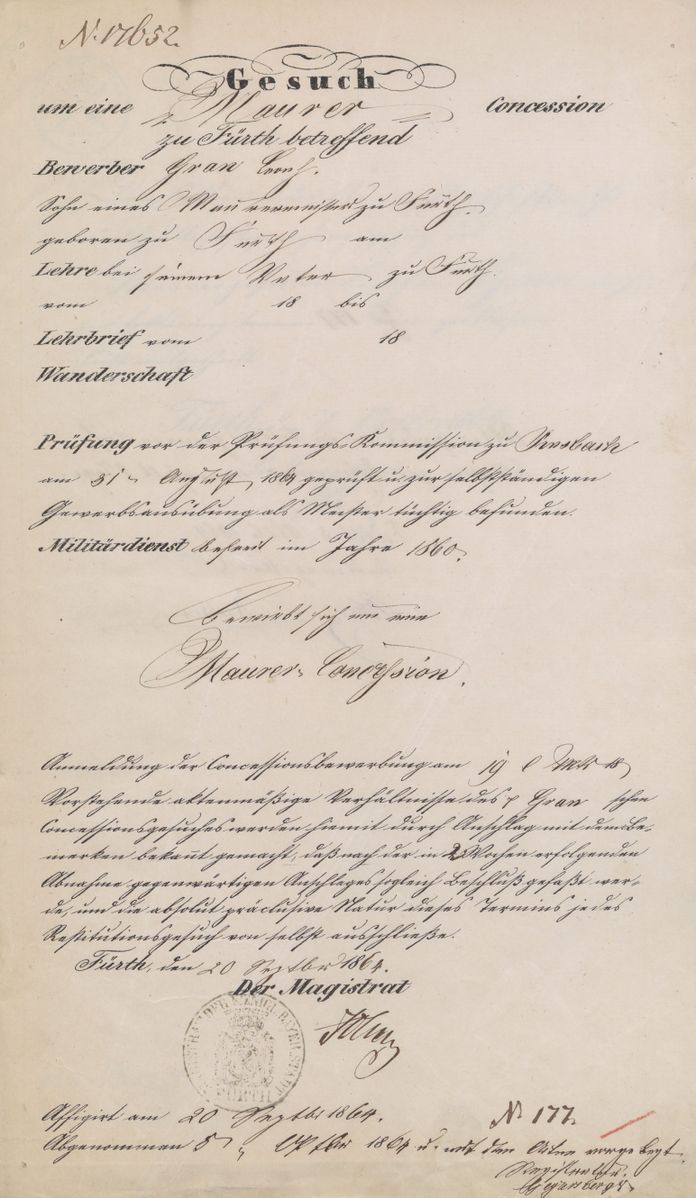 N. 17652.
Gesuch
um eine Maurer Concession
zu Fürth betreffend
Bewerber Gran Leonh.
Sohn eines Maurermeisters zu Fürth.
geboren zu Fürth am
Lehre bei seinem Vater zu Fürth.
vom 18 bis
Lehrbrief vom 18
Wanderschaft
Prüfung vor der Prüfungs-Kommission zu Ansbach
am 31 August 1864 geprüft u. zur selbstständigen
Gewerbsausübung als Meister tüchtig befunden.
Militärdienst befreit im Jahre 1860.
Bewirbt sich um eine
Maurer-Concession.
Anmeldung der Concessionsbewerbung am 19
Vorstehende aktenmäßige Verhältnisse des Gran schen
Concessionsgesuches werden hiemit durch Anschlag mit dem Be-
merken bekannt gemacht, daß nach der in 2 Wochen erfolgenden
Abnahme gegenwärtigen Anschleges sogleich Beschluß gefaßt wer-
de, und die absolut präclusive Natur dieses Termins jedes
Restitutionsgesuch von selbst ausschließe.
Fürth, den 20 Septbr 1864.
Der Magistrat
FÜRTH
Affigirt am 20 Septbr 1864. N. 177.
Abgenommen 5 Octbr 1864 u. mit den Akten vorgelegt.